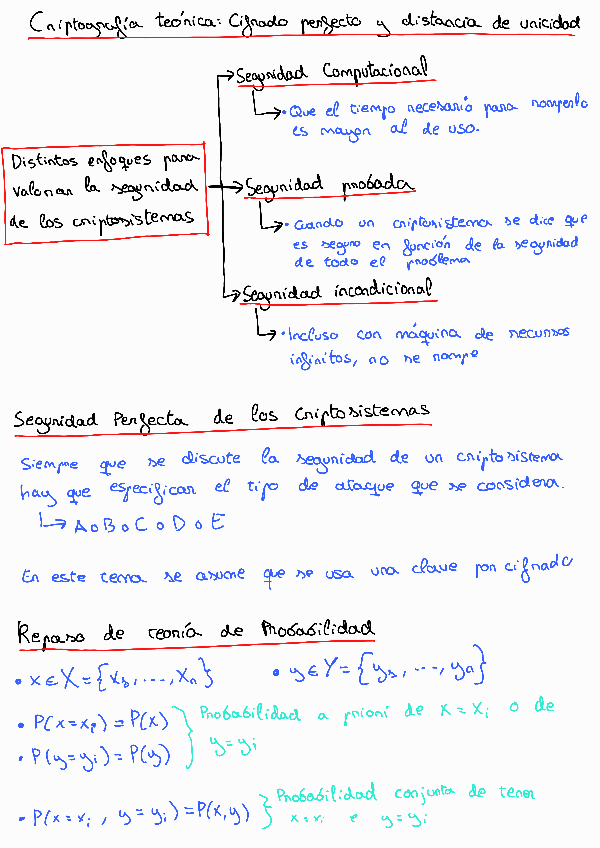 Criptografía teórica: Cifrado perfecto y distancia de unicidad
Distintos enfoques para
valorar la seguridad
de los criptosistemas
Seguridad Computacional
• Que el tiempo necesario para romperlo
es mayor al de uso.
Seguridad probada
• Cuando un criptosistema se dice que
es seguro en función de la seguridad
de todo el problema
Seguridad incondicional
• Incluso con máquina de recursos
infinitos, no se rompe
Seguridad Perfecta de los criptosistemas
Siempre que se discute la seguridad de un criptosistema
hay que especificar el tipo de ataque que se considera.
A o B o C o D o E
En este tema se asume que se usa una clave por cifrado
Repaso de teoría de Probabilidad
• x ∈ X = {x₁, ..., xₙ} • y ∈ Y = {y₁, ..., yₙ}
• P(x=xᵢ) = P(x)
• P(y=yᵢ) = P(y)
Probabilidad a priori de x = xᵢ o de
y = yᵢ
• P(x=xᵢ, y=yᵢ) = P(x,y)
Probabilidad conjunta de tener
x=xᵢ e y=yᵢ